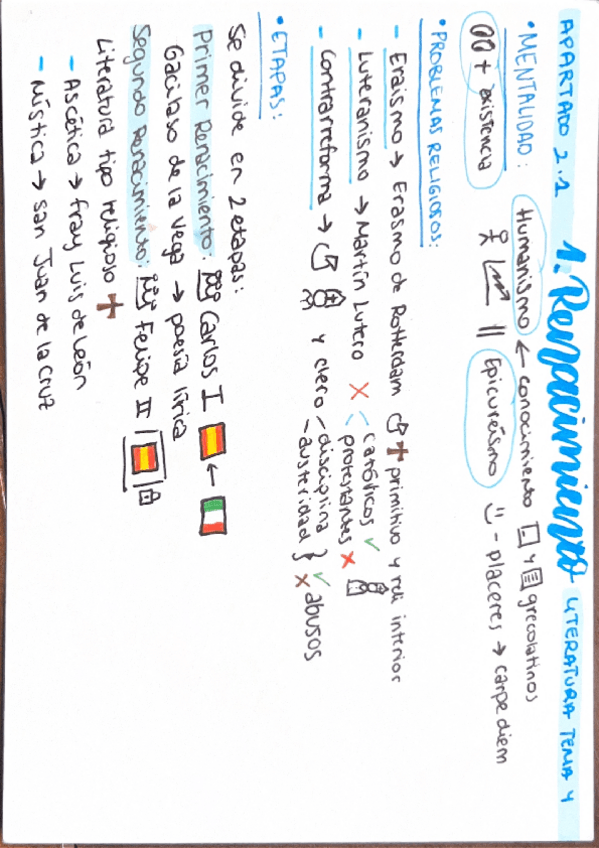 APARTADO 2.1
LITERATURA TEMA 4
1. Renacimiento
• MENTALIDAD:
Humanismo ← conocimiento y grecolatinos
+ existencia
|| Epicureísmo :) - placeres → carpe diem
• PROBLEMAS RELIGIOSOS:
- Eraismo → Erasmo de Rotterdam + primitivo y reli interior
- Luteranismo → Martín Lutero X < católicos ✓
protestantes X
- Contrarreforma → y clero < disciplina } ✓
- austeridad } X abusos
• ETAPAS:
Se divide en 2 etapas:
Primer Renacimiento: Carlos I ←
Gacilaso de la Vega → poesía lírica
Segundo Renacimiento: Felipe II
Literatura tipo religioso +
- Ascética → fray Luis de León
- Mística → san Juan de la Cruz